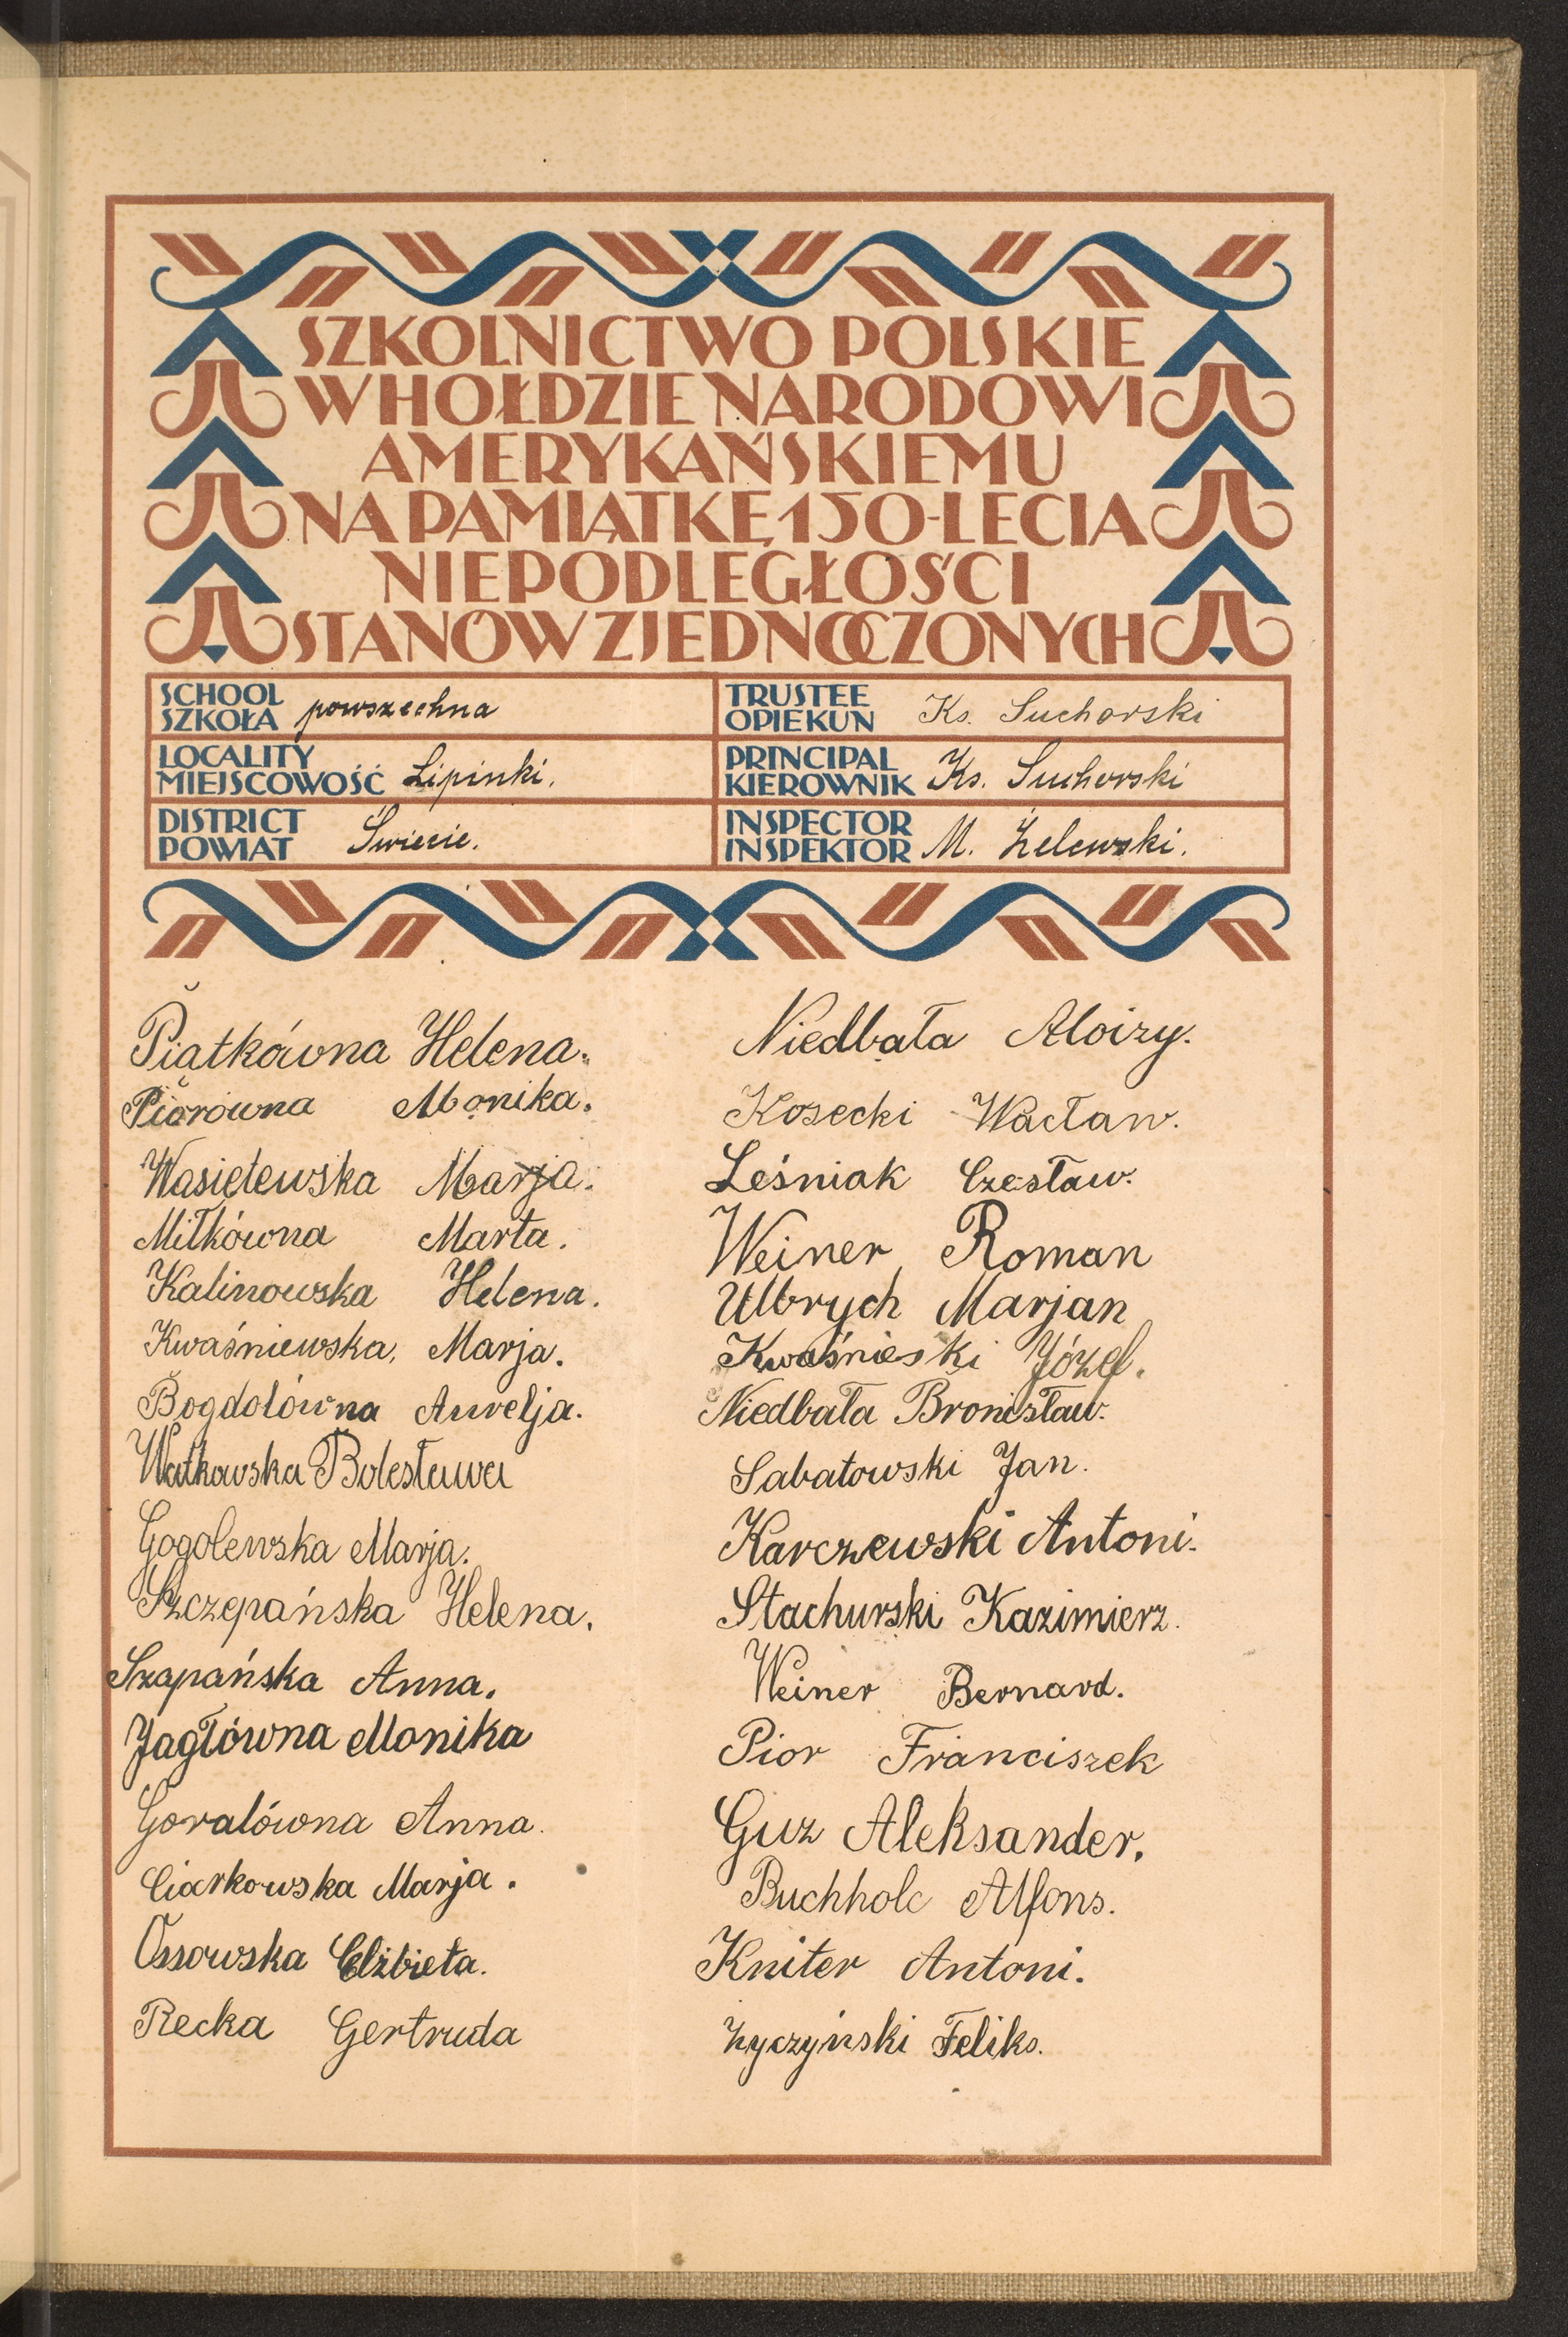 SZKOLNICTWO POLSKIE
W HOŁDZIE NARODOWI
AMERYKAŃSKIEMU
NA PAMIĄTKĘ 150-LECIA
NIEPODLEGŁOŚCI
STANÓW ZJEDNOCZONYCH
SCHOOL
SZKOŁA powszechna
TRUSTEE
OPIEKUN Ks. Suchorski
LOCALITY
MIEJSCOWOŚĆ Lipinki.
PRINCIPAL
KIEROWNIK Ks. Suchorski
DISTRICT
POWIAT Świecie.
INSPECTOR
INSPEKTOR M. Żelewski.
Piątkówna Helena.
Piorówna Monika.
Wasielewska Marja.
Miłkówna Marta.
Kalinowska Helena.
Kwaśniewska, Marja.
Bogdolówna Aurelja.
Watkowska Bolesława
Gogolewska Marja.
Szczepańska Helena.
Szapańska Anna.
Jagłówna Monika
Goralówna Anna.
Ciarkowska Marja.
Ossowska Elżbieta.
Recka Gertruda
Niedbała Aloizy.
Kosecki Wacław.
Leśniak Czesław.
Weiner Roman
Ulbrych Marjan
Kwaśnieski Józef.
Niedbała Bronisław.
Sabatowski Jan.
Karczewski Antoni.
Stachurski Kazimierz.
Weiner Bernard.
Pior Franciszek
Guz Aleksander.
Buchholc Alfons.
Kniter Antoni.
Życzyński Feliks.